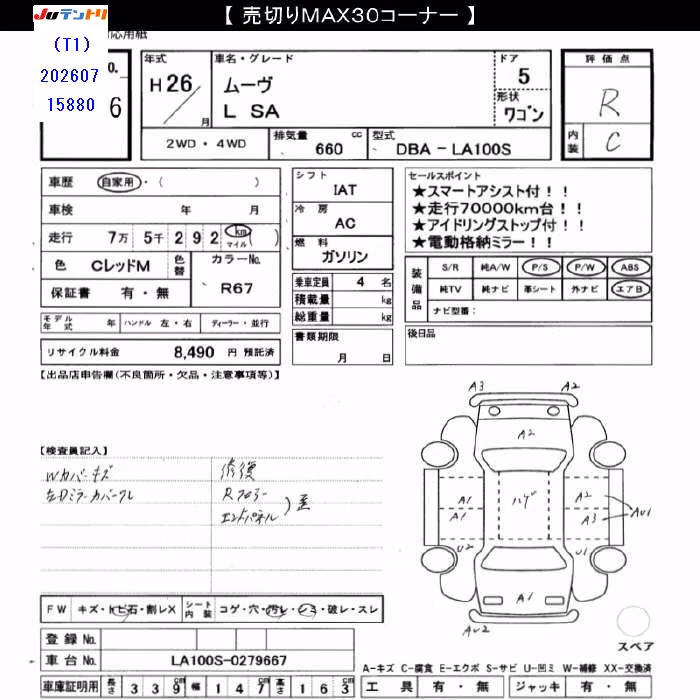 【 売切りMAX30コーナー 】
JUテントリ
応用紙
(T1)
202607
15880
o.
6
年式
H 26
月
車名・グレード
ムーヴ
L SA
ドア
5
形状
ワゴン
評価点
R
内装
C
2WD・4WD
排気量
660
cc
型式
DBA - LA100S
車歴
自家用・( )
車検
年 月
走行
7万 5千 2 9 2
km
マイル
( )
色
CレッドM
色替
カラーNo.
R67
保証書 有・無
シフト
IAT
冷房
AC
燃料
ガソリン
乗車定員 4 名
積載量 kg
総重量 kg
書類期限
月 日
セールスポイント
★スマートアシスト付！！
★走行70000km台！！
★アイドリングストップ付！！
★電動格納ミラー！！
装備品
S/R 純A/W P/S P/W ABS
純TV 純ナビ 革シート 外ナビ エアB
ナビ型番：
モデル年式 年 ハンドル 左・右 ディーラー・並行
リサイクル料金 8,490 円 預託済
後日品
【出品店申告欄(不良箇所・欠品・注意事項等)】
【検査員記入】
Wカバーキズ
左Dミラーカバークレ
修復
Rフロアー
エンドパネル
) 歪
A3
A2
A2
A1
A1
ハゲ
A2
A3
AU1
U2
U1
A1
AU2
スペア
FW キズ・トビ石・割レX
シート内装 コゲ・穴・汚レ・シミ・破レ・スレ
登録 No.
車台 No. LA100S-0279667
車庫証明用 長さ 3 3 9 cm 幅 1 4 7 cm 高さ 1 6 3 cm
A-キズ C-腐食 E-エクボ S-サビ U-凹ミ W-補修 XX-交換済
工具 有・無 ジャッキ 有・無